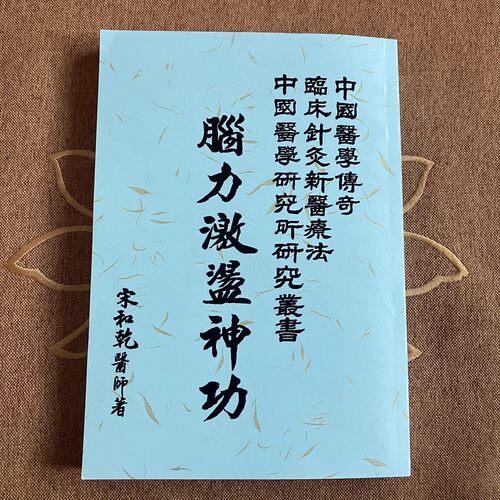 中國醫學傳奇
臨床針灸新醫療法
中國醫學研究所研究叢書
腦力激盪神功
宋和乾醫師著